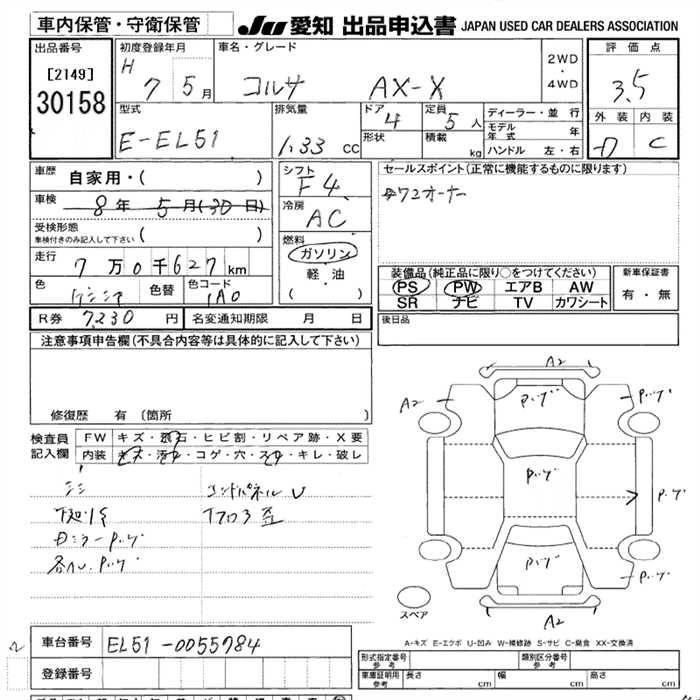 車内保管・守衛保管
JU 愛知 出品申込書 JAPAN USED CAR DEALERS ASSOCIATION
出品番号
[2149]
30158
初度登録年月
H 7 5月
車名・グレード
コルサ AX-X
2WD
・
4WD
評価点
3.5
外装 内装
D C
型式
E-EL51
排気量
1.33 cc
ドア
4
形状
定員
5人
積載
kg
ディーラー・並行
モデル年式 年
ハンドル 左・右
車歴
自家用・( )
車検
8年 5月(30日)
受検形態
車検付きのみ記入して下さい ( )
走行
7万0千627km
色
色替
色コード
1A0
シフト
F4
冷房
AC
燃料
ガソリン
軽・油
( )
セールスポイント(正常に機能するものに限ります)
装備品(純正品に限り○をつけてください)
PS PW エアB AW
SR ナビ TV カワシート
新車保証書
有・無
R券 7,230円
名変通知期限 月 日
後日品
注意事項申告欄(不具合内容等は具体的に記入して下さい)
修復歴 有(箇所 )
検査員
記入欄
FW キズ・飛石・ヒビ割・リペア跡・X要
内装 キズ・汚れ・コゲ・穴・スレ・キレ・破レ
エンドパネル U
A2
A2
A2
スペア
A-キズ E-エクボ U-凹み W-補修跡 S-サビ C-腐食 XX-交換済
車台番号 EL51-0055784
登録番号
形式指定番号
参考
類別区分番号
参考
車庫証明用
参考
長さ 幅 高さ